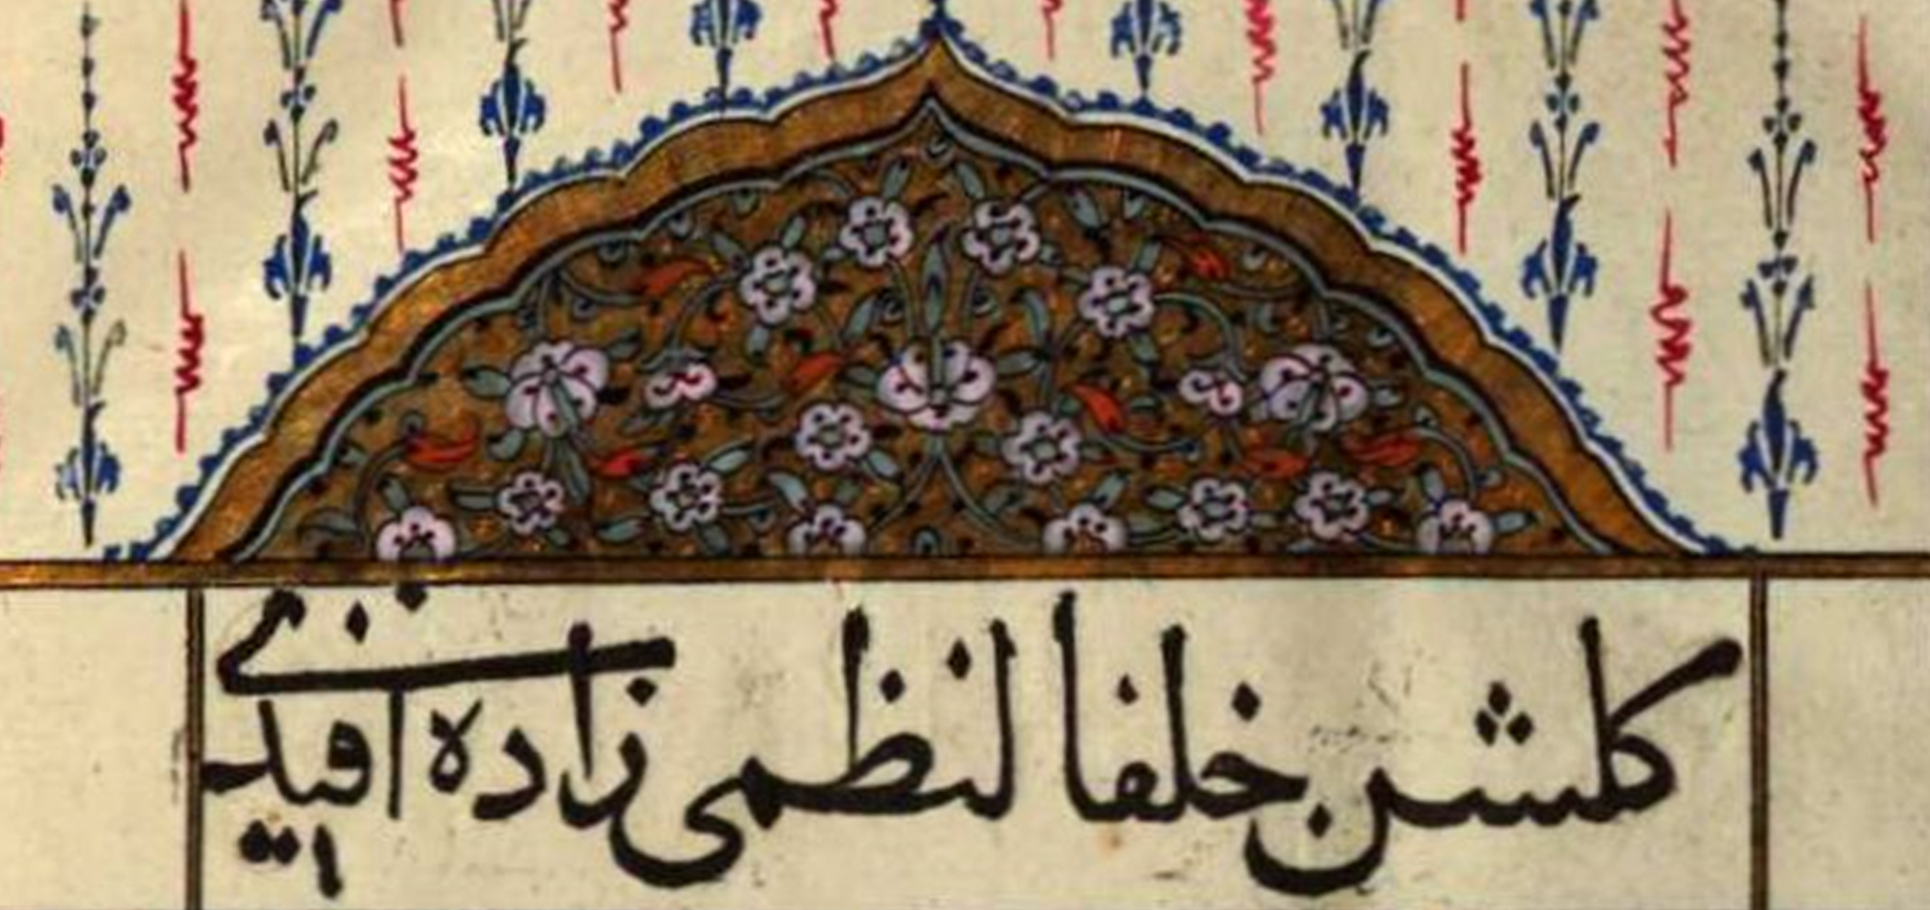 كلشن خلفا لنظمی زاده افندی